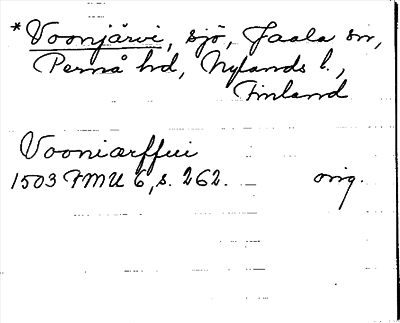 *Voonjärvi, sjö, Jaala sn,
Pernå hd, Nylands l.,
Finland
Vooniærffui
1503 FMU 6, s. 262. orig.